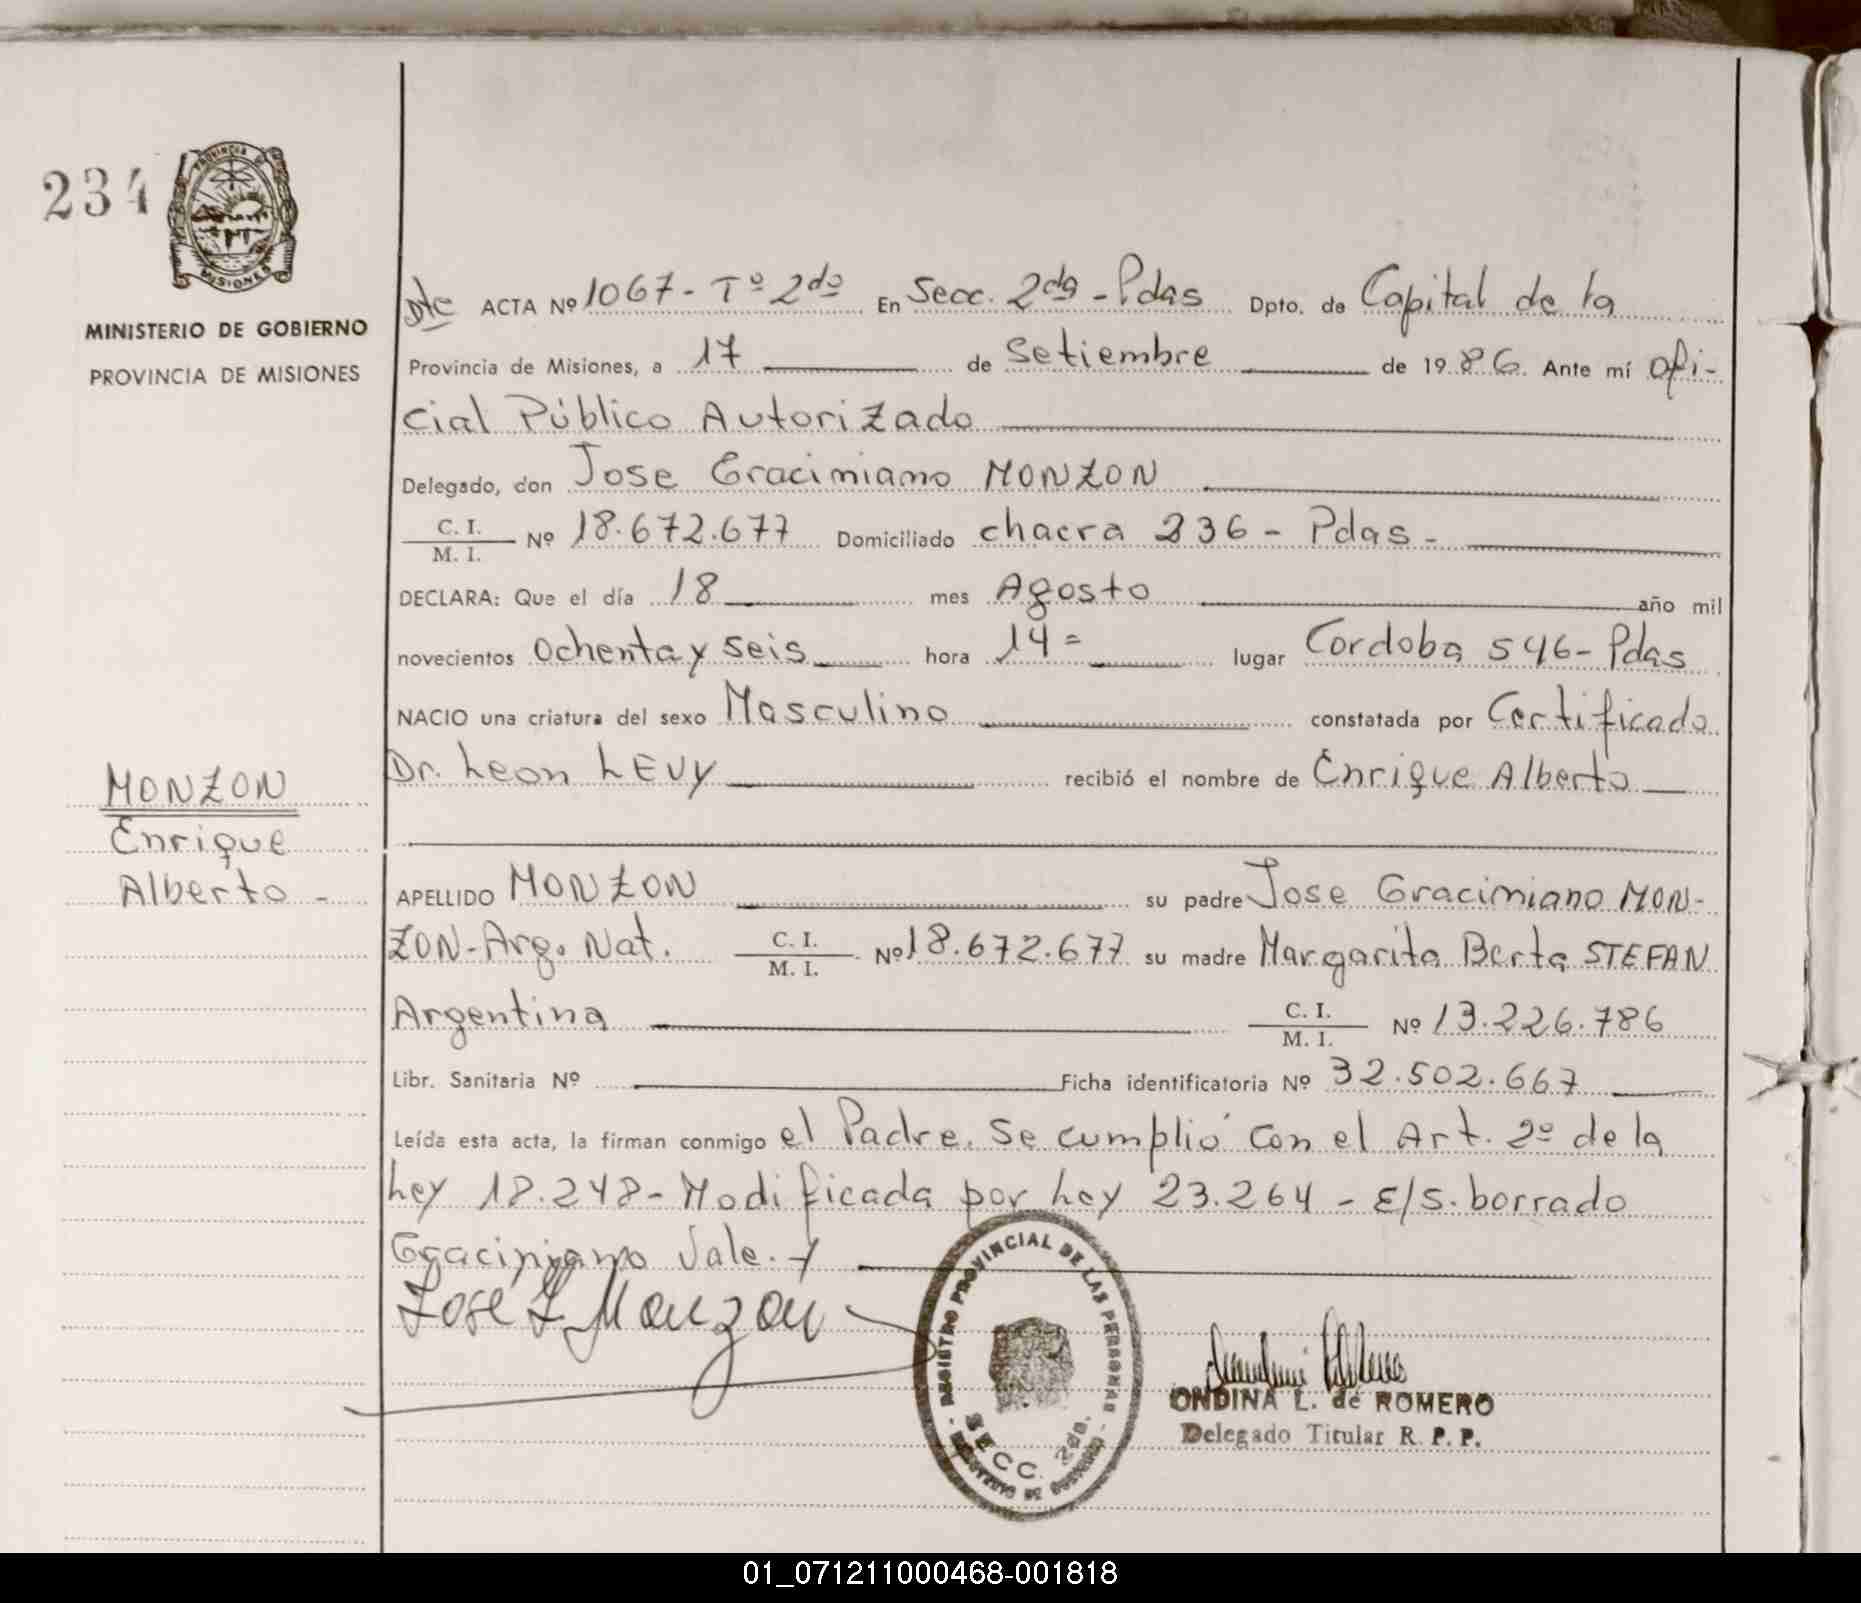 234
PROVINCIA DE
MISIONES
MINISTERIO DE GOBIERNO
PROVINCIA DE MISIONES
MONZON
Enrique
Alberto -
Dte ACTA Nº 1067 - Tº 2do En Secc. 2da - Pdas Dpto. de Capital de la
Provincia de Misiones, a 17 de Setiembre de 1986. Ante mí Ofi-
cial Público Autorizado
Delegado, don Jose Graciniano MONZON
C. I.
M. I. Nº 18.672.677 Domiciliado chacra 236 - Pdas -
DECLARA: Que el día 18 mes Agosto año mil
novecientos Ochenta y seis hora 14= lugar Cordoba 546 - Pdas
NACIO una criatura del sexo Masculino constatada por Certificado
Dr. Leon LEVY recibió el nombre de Enrique Alberto
APELLIDO MONZON su padre Jose Graciniano MON-
ZON - Arg. Nat. C. I.
M. I. Nº 18.672.677 su madre Margarita Berta STEFAN
Argentina C. I.
M. I. Nº 13.226.786
Libr. Sanitaria Nº Ficha identificatoria Nº 32.502.667
Leída esta acta, la firman conmigo el Padre. Se cumplió con el Art. 2º de la
Ley 18.248 - Modificada por Ley 23.264 - E/S. borrado
Graciniano Vale.-
José G Monzon
REGISTRO PROVINCIAL DE LAS PERSONAS
SECC. 2da.
ONDINA L. de ROMERO
Delegado Titular R. P. P.
01_071211000468-001818